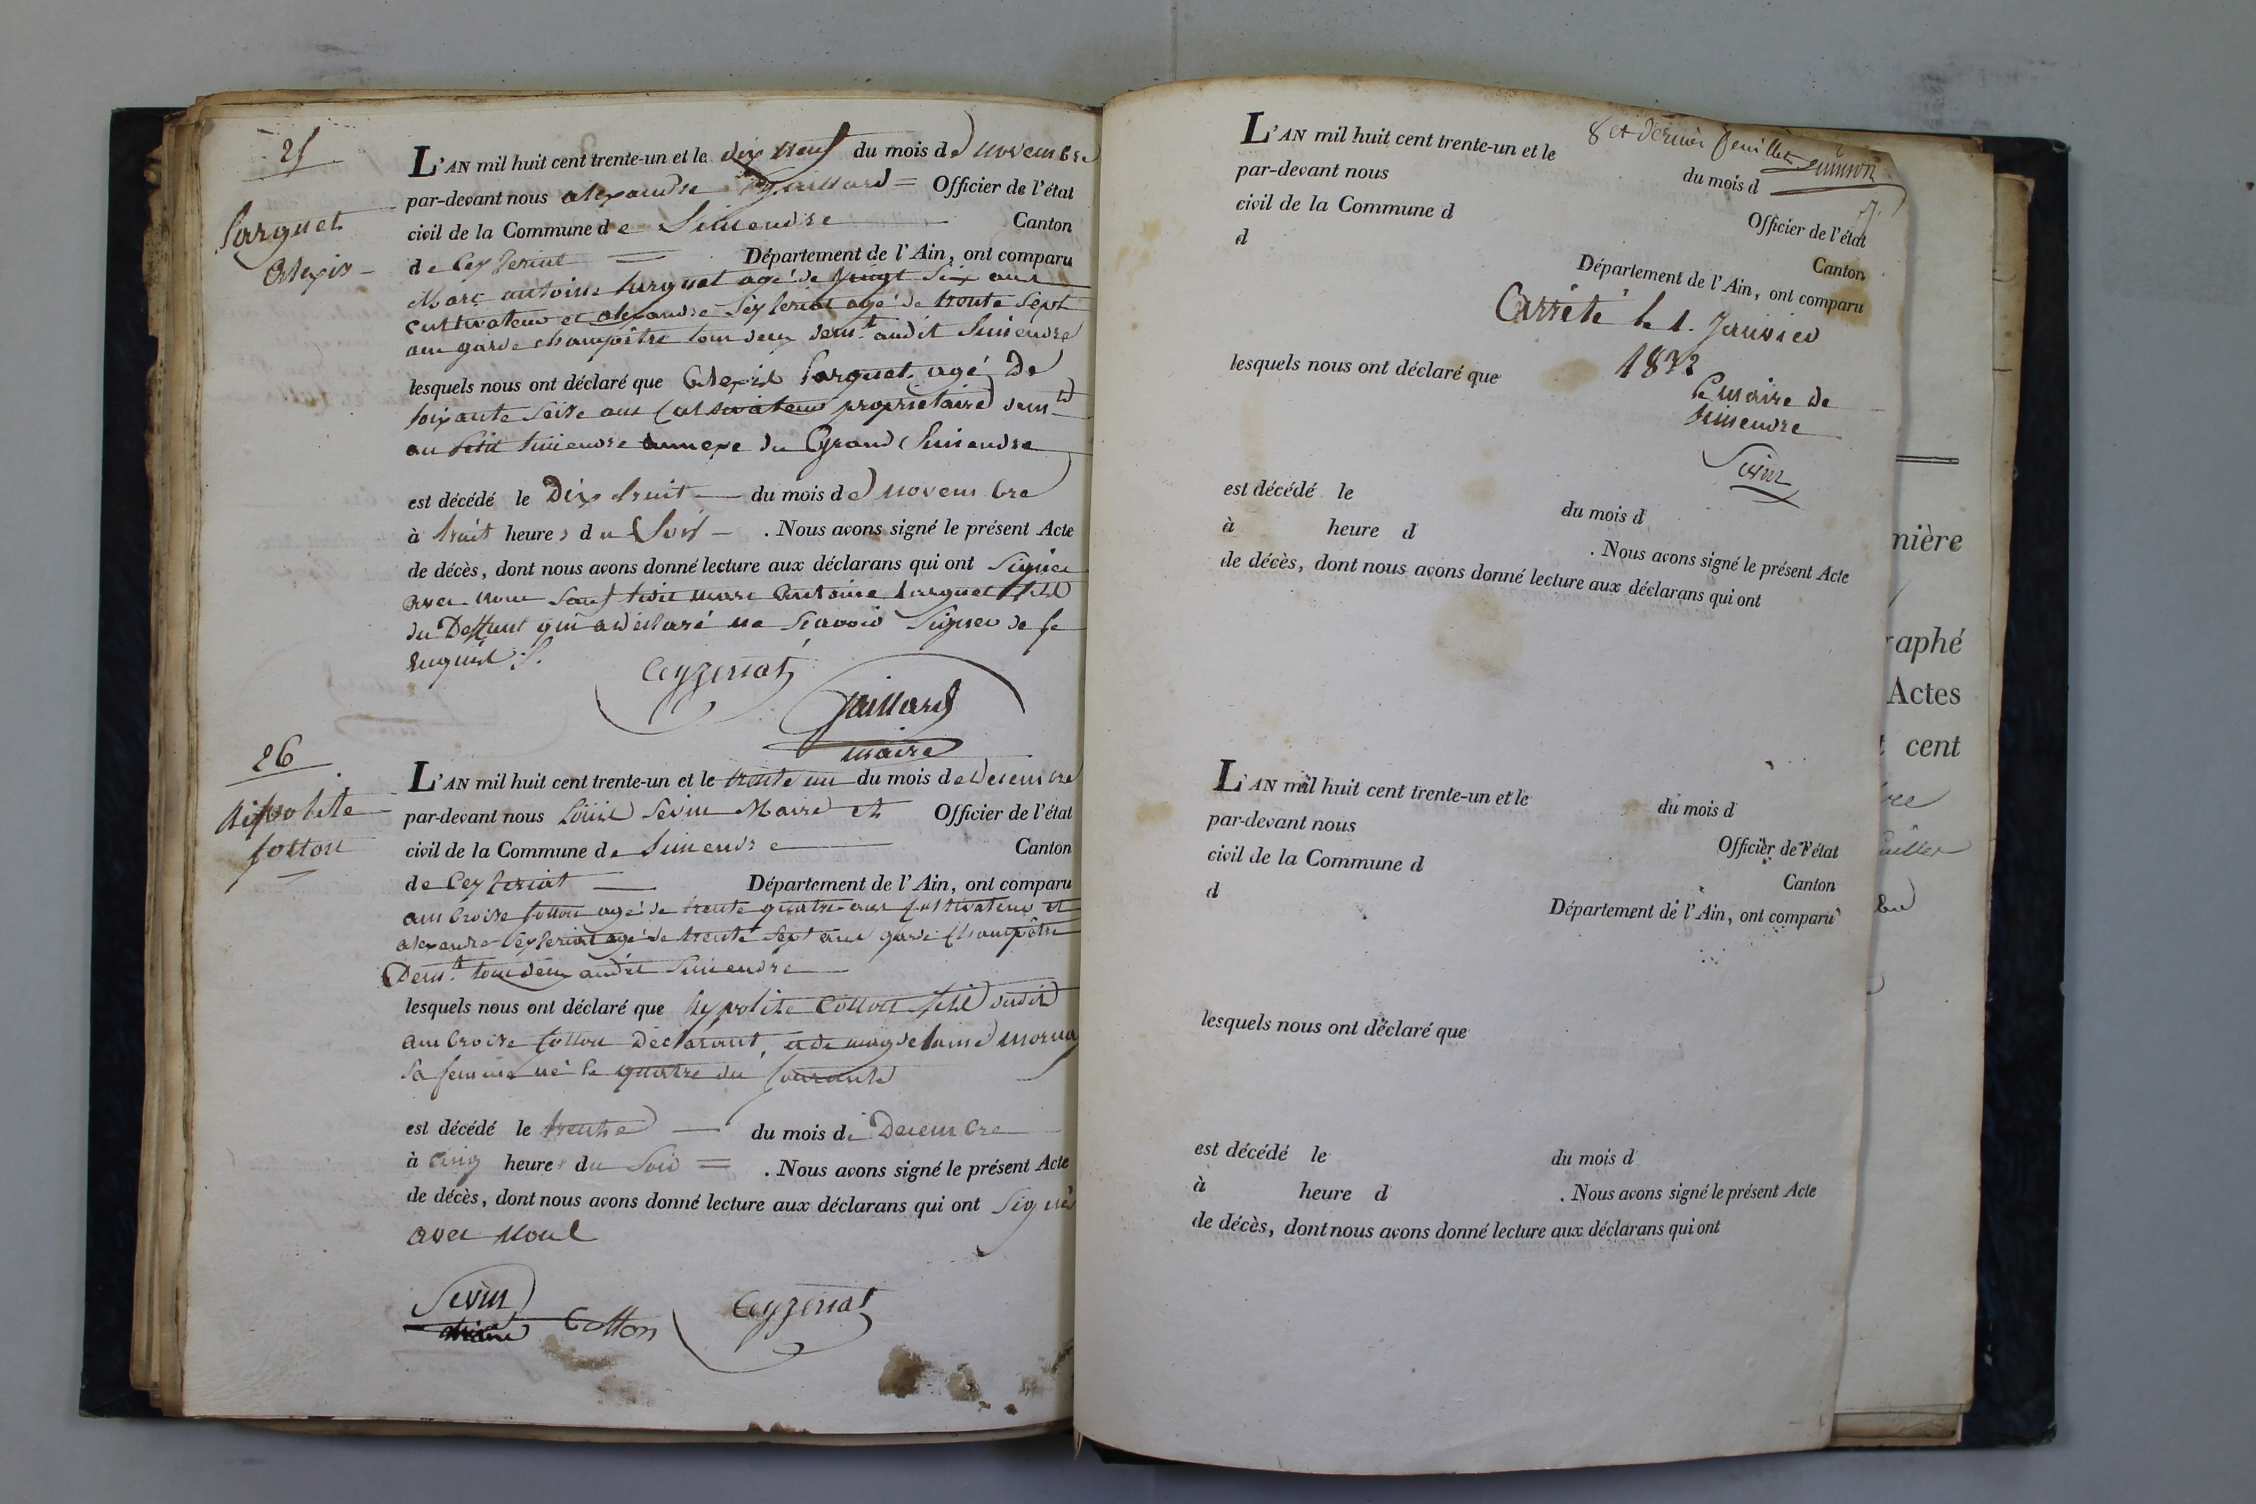 25
L'AN mil huit cent trente-un et le dix neuf du mois de novembre
par-devant nous alexandre Gaillard = Officier de l'état
civil de la Commune de Simendre Canton
Larguet
alexis
de Ceyzeriat = Département de l'Ain, ont comparu
Marc antoine larguet agé de vingt six ans
cultivateur et alexandre Ceyzeriat agé de trente sept
ans garde champêtre tous deux demt. audit Simendre
lesquels nous ont déclaré que alexis Larguet agé de
soixante seise ans Cultivateur propriétaire demt
au petit Simendre annexe du Grand Simendre
est décédé le Dix huit du mois de novembre
à huit heures du Soir . Nous avons signé le présent Acte
de décès, dont nous avons donné lecture aux déclarans qui ont Signé
avec nous Sauf ledit marc Antoine larguet fils
du Deffunt qui a déclaré ne Scavoir Signer de ce
enquis
Ceyzeriat
Gaillard
maire
26
L'AN mil huit cent trente-un et le trente un du mois de Decembre
hipolite
Cotton
par-devant nous Louis Sevin Maire et Officier de l'état
civil de la Commune de Simendre Canton
de Ceyzeriat Département de l'Ain, ont comparu
ambroise Cotton agé de trente quatre ans Cultivateur et
alexandre Ceyzeriat agé de trente sept ans garde Champêtre
Demt. tous deux audit Simendre
lesquels nous ont déclaré que hypolite Cotton fils dudit
ambroise Cotton Déclarant, et de magdelaine
sa femme né le quatre du Courant
est décédé le trente du mois de Decembre
à cinq heures du Soir = . Nous avons signé le présent Acte
de décès, dont nous avons donné lecture aux déclarans qui ont Signés
avec nous
Sevin
maire
Cotton
Ceyzeriat
8 et dernier feuillet
L'AN mil huit cent trente-un et le du mois d
par-devant nous Officier de l'état
civil de la Commune d Canton
d Département de l'Ain, ont comparu
Arrêté le 1. Janvier
1832
lesquels nous ont déclaré que
le maire de
Simendre
Sevin
est décédé le du mois d
à heure d . Nous avons signé le présent Acte
de décès, dont nous avons donné lecture aux déclarans qui ont
L'AN mil huit cent trente-un et le du mois d
par-devant nous Officier de l'état
civil de la Commune d Canton
d Département de l'Ain, ont comparu
lesquels nous ont déclaré que
est décédé le du mois d
à heure d . Nous avons signé le présent Acte
de décès, dont nous avons donné lecture aux déclarans qui ont
mière
raphé
Actes
cent